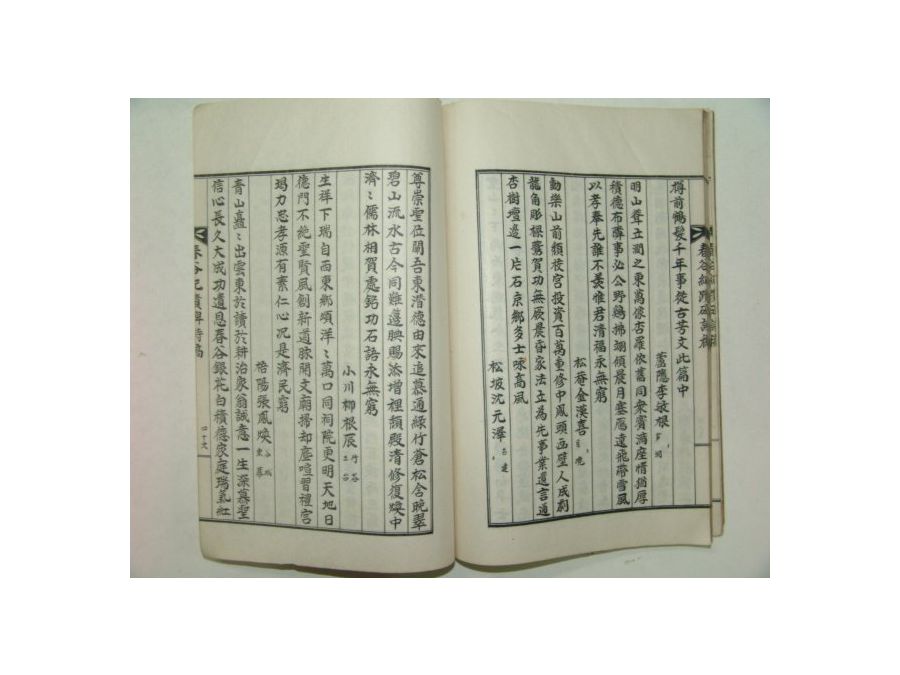 樽前鶴髮千年事從古芳文此篇中
蘆隱李敏根
明山聳立澗之東萬像杏羅依舊同衆賓滿座情猶厚
積德布 事必公野鶏拂翅領晨月塞鴈遠飛 雪風
以孝奉先誰不羨惟君清福永無窮
松菴金漢喜
動樂山前頖校宮投資百萬重修中鳳頭画壁人成刻
龍角彫樑 賀功無厥晨昏家法立為先事業遺言通
杏樹壇邊一片石京鄉多士咏高風
松坡沈元澤
春谷紀蹟碑詩稿
尊崇聖位闢吾東潜德由來追慕通綠竹蒼松含晚翠
碧山流水古今同難蓬腆賜添增裡頖殿清修復煥中
濟〻儒林相賀處銘功石語永無窮
小川柳根辰
生祥下瑞自西東鄉頌洋〻萬口同祠院更明天地日
德門不絶聖賢風創新道脉開文廟掃却塵喧習禮宮
竭力忠孝源有素仁心況是濟民窮
梧陽張鳳煥
青山矗〻出雲東於讀於耕治家翁誠意一生深慕聖
信心長久大成功遺恩春谷銀花白積德家庭瑞氣紅
春谷紀蹟碑詩稿